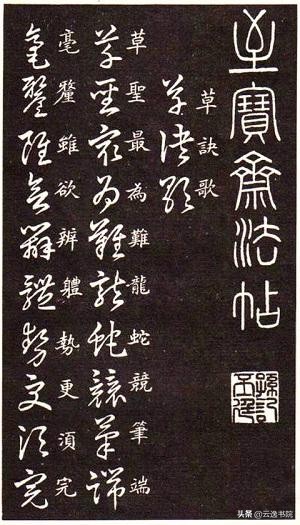 至寶齋法帖
草訣歌
草訣歌
草聖最為難龍蛇競筆端
草聖最為難龍蛇競筆端
毫釐雖欲辨體勢更湏完
毫釐雖欲辨體勢更湏完
头条 @云逸书院